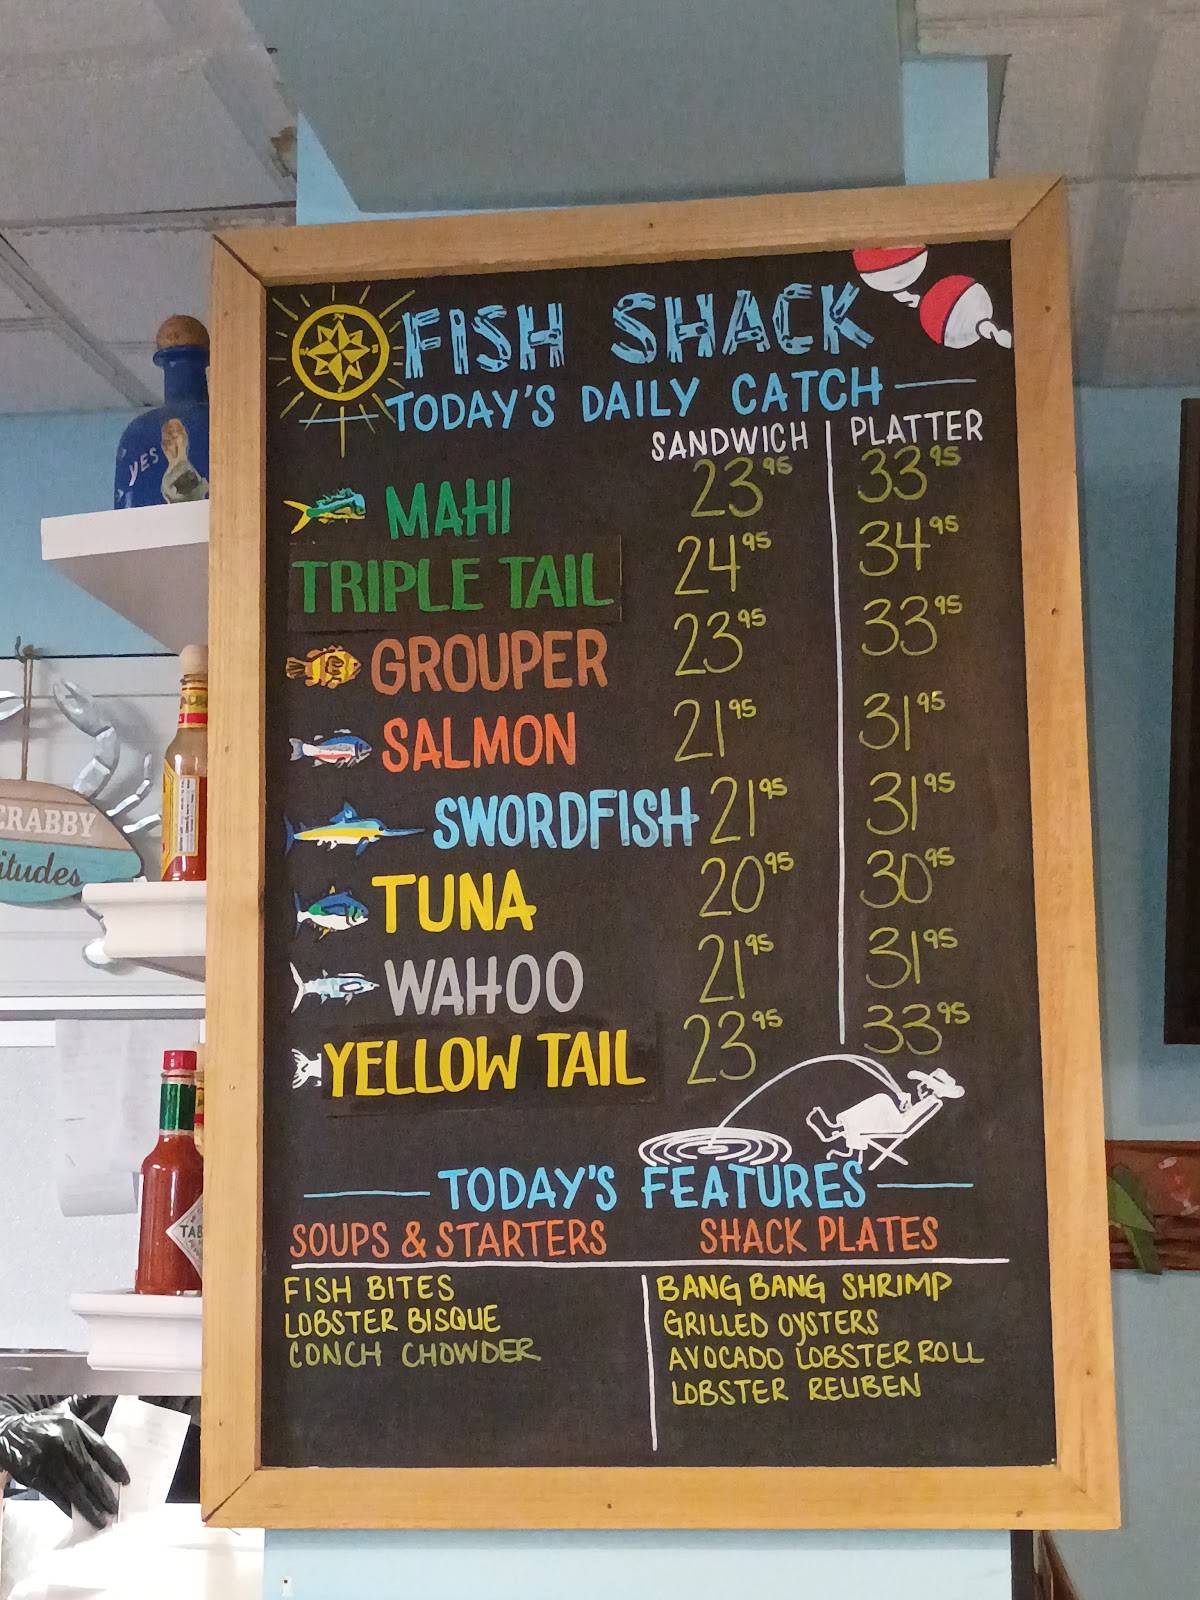 FISH SHACK
TODAY'S DAILY CATCH
SANDWICH PLATTER
MAHI 23.95 33.95
TRIPLE TAIL 24.95 34.95
GROUPER 23.95 33.95
SALMON 21.95 31.95
SWORDFISH 21.95 31.95
TUNA 20.95 30.95
WAHOO 21.95 31.95
YELLOW TAIL 23.95 33.95
TODAY'S FEATURES
SOUPS & STARTERS SHACK PLATES
FISH BITES BANG BANG SHRIMP
LOBSTER BISQUE GRILLED OYSTERS
CONCH CHOWDER AVOCADO LOBSTER ROLL
LOBSTER REUBEN
YES
CRABBY
itudes
TAB